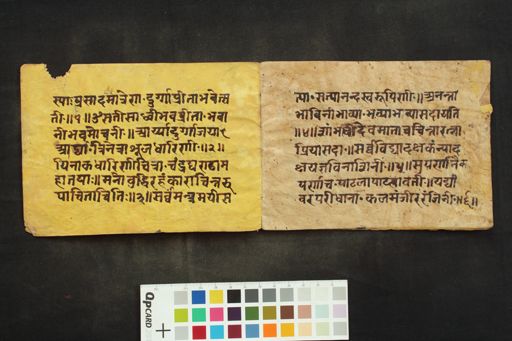 स्याः प्रसादमात्रेण दुर्गाप्रीताभवेत्स
ती॥१॥ॐसतीसाध्वीभवप्रीता भवा
नीभवमोचनी॥आर्य्यादुर्गाजया
आद्यात्रिनेत्राशूलधारिणी॥२॥
पिनाकधारिणीचित्रा चंडघण्टाम
हातपाः॥मनोबुद्धिरहंकाराचित्तरू
पाचिताचितिः॥३॥सर्वमन्त्रमयीस
त्या सत्यानन्दस्वरूपिणी॥अनन्ता
भाविनीभाव्या भव्याभव्यासदागति
॥४॥शांभवीदेवमाताचचिन्तारत्न
प्रियासदा॥सर्वविद्यादक्षकन्याद
क्षयज्ञविनाशिनी॥५॥अपर्णानेक
पर्णाच पाटलापाटलावती॥पट्टां
वरपरीधाना कलमंजीररंजिनी॥६॥
QPCARD